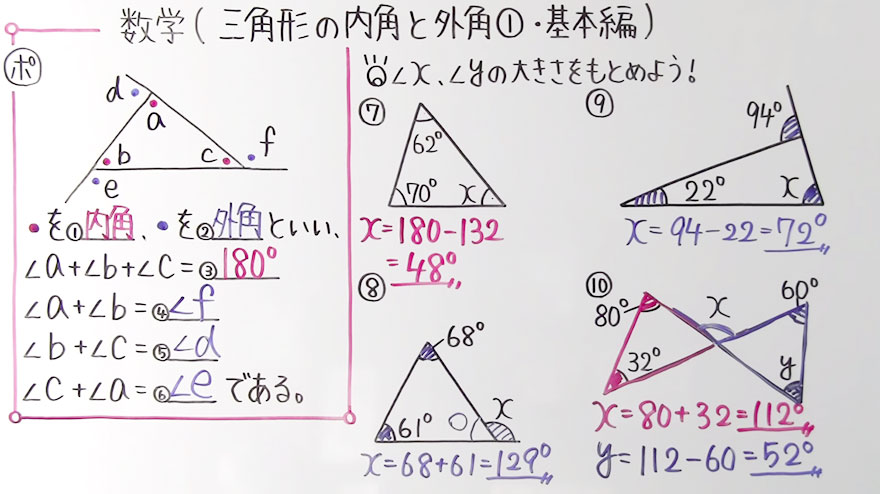 数学(三角形の内角と外角①・基本編)
ポ
d
a
b
c
f
e
●を①内角、●を②外角といい、
∠a+∠b+∠c=③180°
∠a+∠b=④∠f
∠b+∠c=⑤∠d
∠c+∠a=⑥∠eである。
∠x、∠yの大きさをもとめよう!
⑦
62°
70°
x
x=180-132
=48°
⑧
68°
61°
x
x=68+61=129°
⑨
94°
22°
x
x=94-22=72°
⑩
80°
x
60°
32°
y
x=80+32=112°
y=112-60=52°